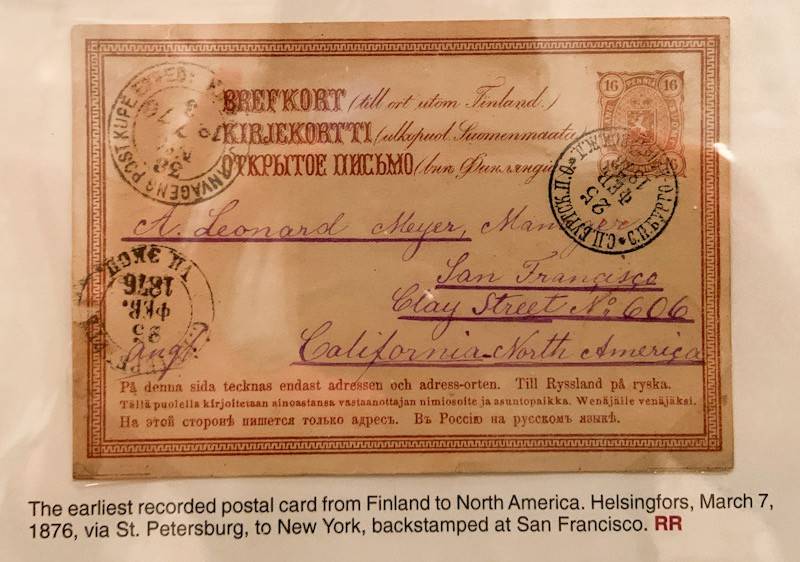 BREFKORT (till ort utom Finland.)
KIRJEKORTTI (ulkopuol. Suomenmaata
ОТКРЫТОЕ ПИСЬМО (внѣ Финлянді
16 PENNIÄ 16
16
A. Leonard Meyer, Manager
San Francisco
Clay Street No 606
California-North America
På denna sida tecknas endast adressen och adress-orten. Till Ryssland på ryska.
Tällä puolella kirjoitetaan ainoastansa vastaanottajan nimiosoite ja asuntopaikka. Wenäjälle venäjäksi.
На этой сторонѣ пишется только адресъ. Въ Россію на русскомъ языкѣ.
POST KUPE EXPED:
25
ФЕВ.
1876
The earliest recorded postal card from Finland to North America. Helsingfors, March 7,
1876, via St. Petersburg, to New York, backstamped at San Francisco. RR